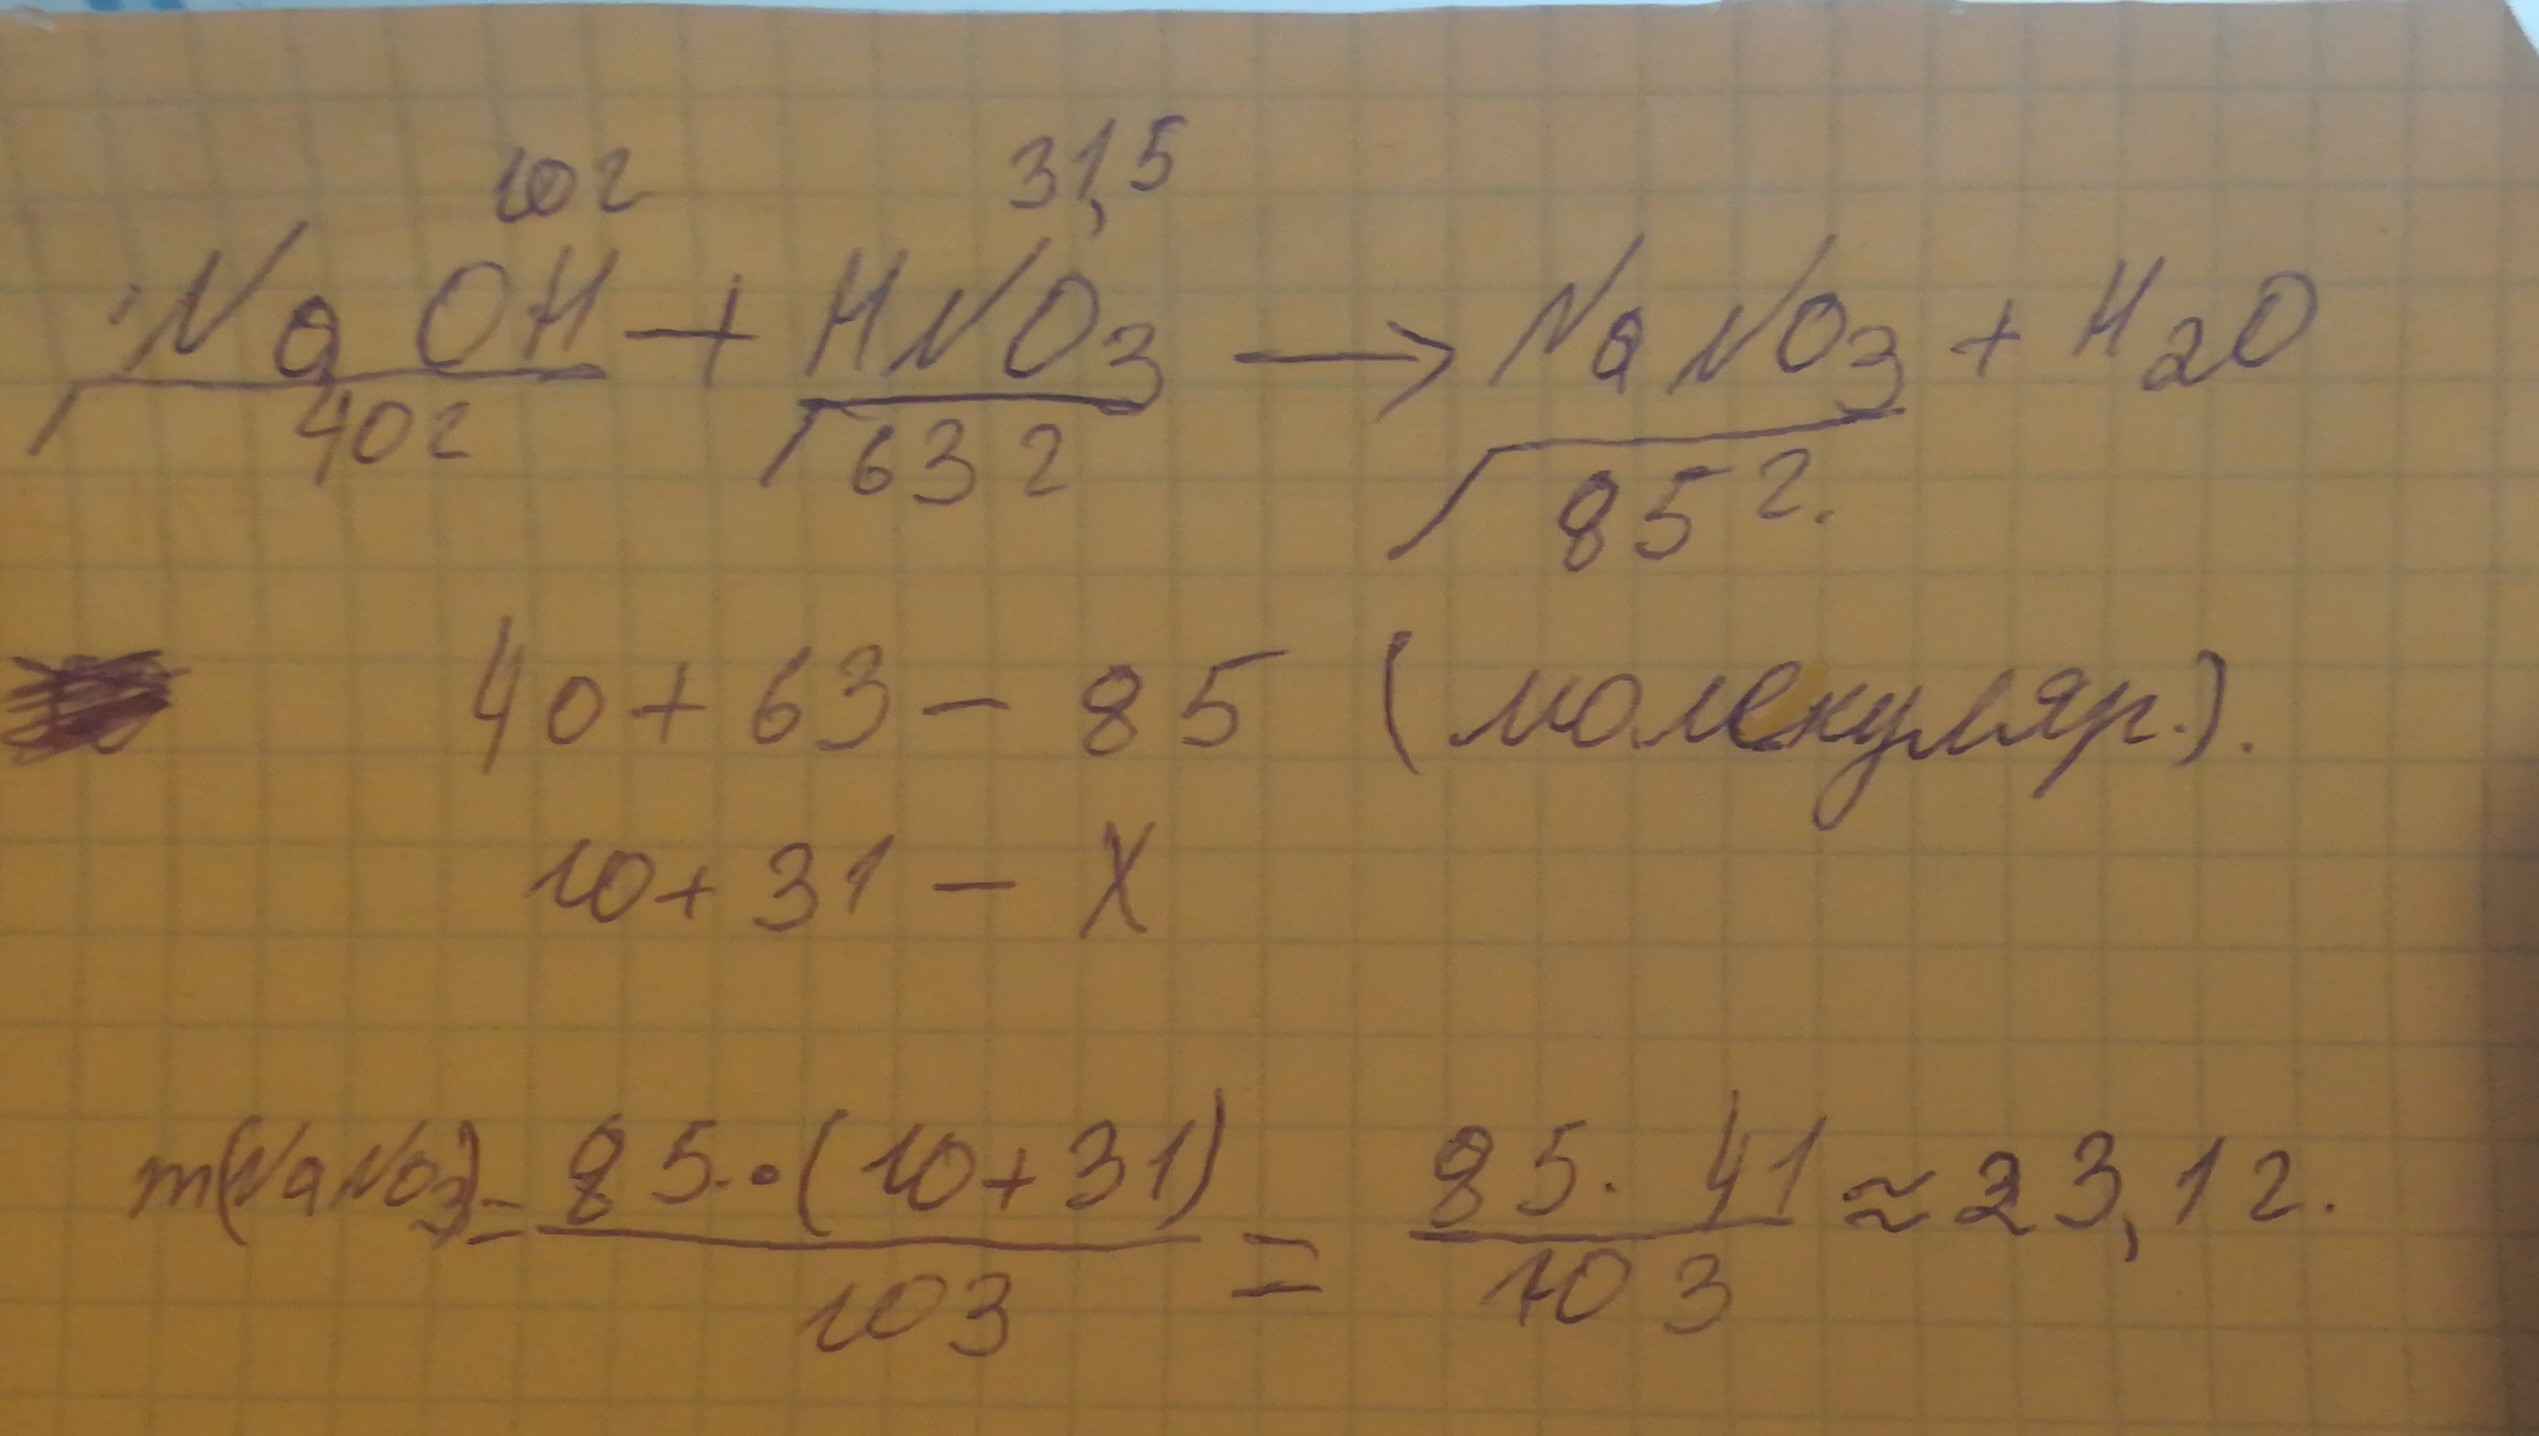 10г 31,5
NaOH + HNO3 → NaNO3 + H2O
40г 63г 85г.
40+63 – 85 (молекуляр.).
10+31 – X
m(NaNO3) = 85·(10+31) = 85·41 ≈ 23,1г.
103 103